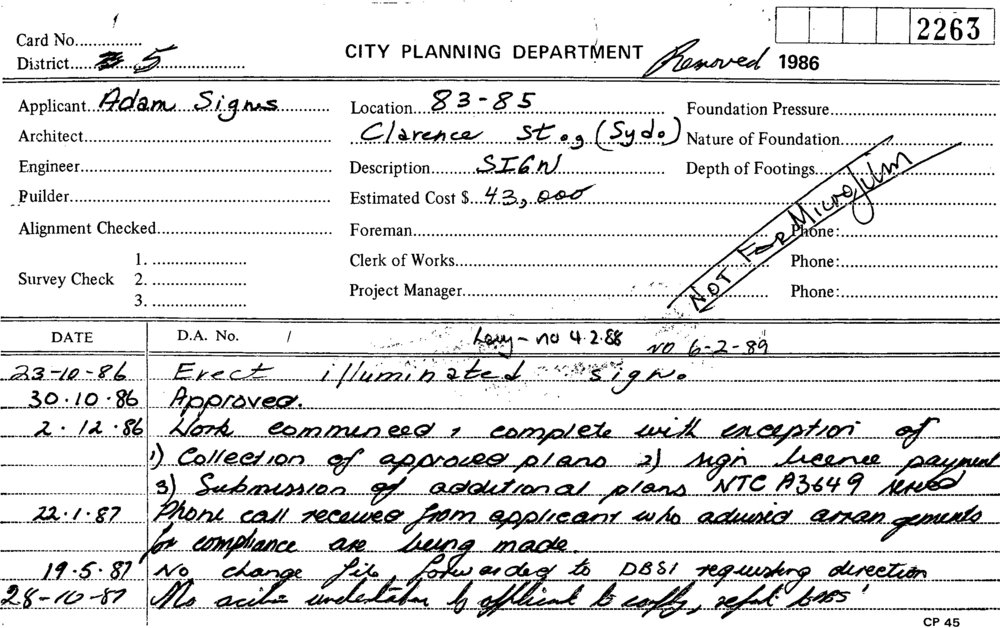 Card No.............. 2263
District.... 5 ................ CITY PLANNING DEPARTMENT Removed 1986
Applicant.. Adam Signs ........ Location... 83-85 Foundation Pressure..............
Architect.............. Clarence St., (Syd.) Nature of Foundation..............
Engineer.............. Description.... SIGN Depth of Footings..............
Builder.............. Estimated Cost $.. 43,000 NOT FOR Microfilm
Alignment Checked.............. Foreman.............. Phone:..............
1. ..............
Survey Check 2. .............. Clerk of Works.............. Phone:..............
3. .............. Project Manager.............. Phone:..............
DATE D.A. No. / Levy - no 4.2.88 no 6-2-89
23-10-86 Erect illuminated sign.
30.10.86 Approved.
2.12.86 Work commenced, complete with exception of
1) Collection of approved plans 2) sign licence payment
3) Submission of additional plans NTC A3649 served
22.1.87 Phone call received from applicant who advised arrangements
for compliance are being made.
19.5.87 No change file forwarded to DBSI requesting direction
28-10-87 No action undertaken by applicant to comply, refer
CP 45